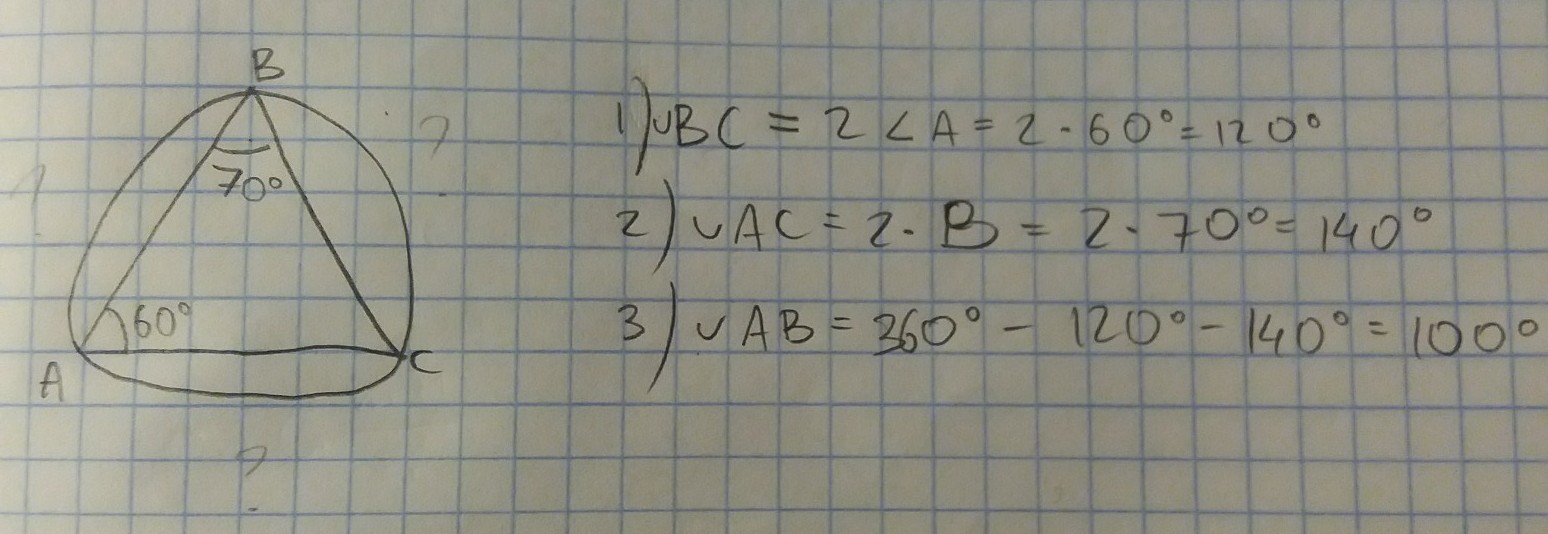 B
?
?
70°
60°
A
C
?
1) ∪BC = 2 ∠A = 2 · 60° = 120°
2) ∪AC = 2 · B = 2 · 70° = 140°
3) ∪AB = 360° - 120° - 140° = 100°